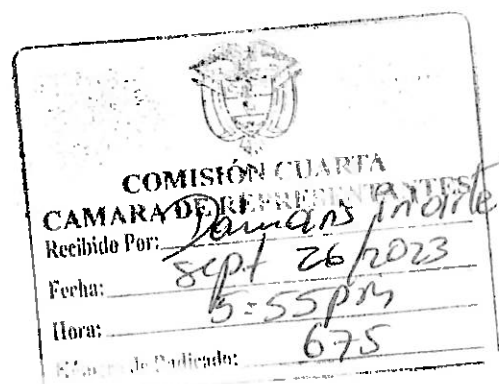 COMISIÓN CUARTA
CAMARA DE REPRESENTANTES
Recibido Por: Damaris
Fecha: Sept 26/2023
Hora: 5:55 pm
Número de Radicado: 675